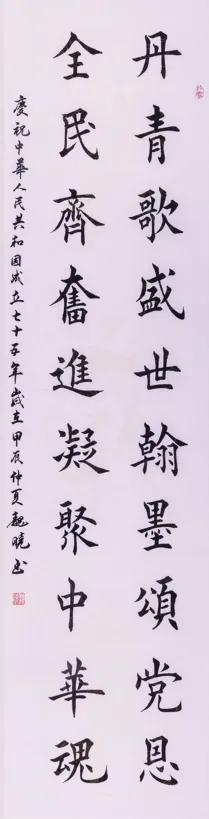 丹青歌盛世翰墨頌党恩
全民齊奮進凝聚中華魂
慶祝中華人民共和国成立七十五年歲在甲辰仲夏魏曉书